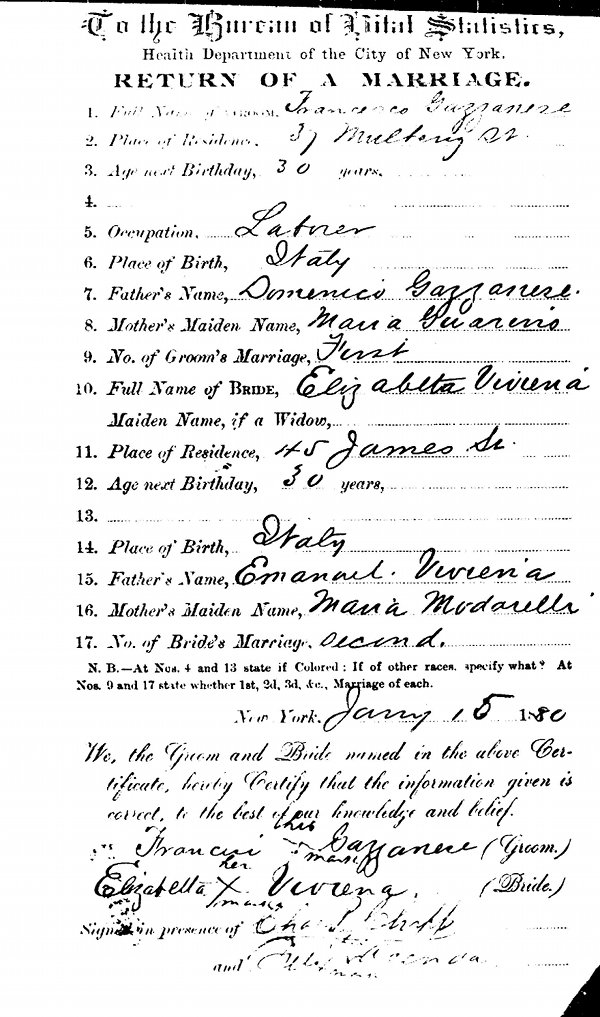 To the Bureau of Vital Statistics,
Health Department of the City of New York.
RETURN OF A MARRIAGE.
1. Full Name of GROOM, Francesco Gazzanese
2. Place of Residence, 37 Mulberry St.
3. Age next Birthday, 30 years,
4.
5. Occupation, Laborer
6. Place of Birth, Italy
7. Father's Name, Domenico Gazzanese.
8. Mother's Maiden Name, Maria Guarino
9. No. of Groom's Marriage, First
10. Full Name of BRIDE, Elizabetta Viviena
Maiden Name, if a Widow,
11. Place of Residence, 45 James St.
12. Age next Birthday, 30 years,
13.
14. Place of Birth, Italy
15. Father's Name, Emanuel. Viviena
16. Mother's Maiden Name, Maria Modarelli
17. No. of Bride's Marriage, second.
N. B.—At Nos. 4 and 13 state if Colored; If of other races, specify what? At
Nos. 9 and 17 state whether 1st, 2d, 3d, &c., Marriage of each.
New York, Jany 15 1880
We, the Groom and Bride named in the above Cer-
tificate, hereby Certify that the information given is
correct, to the best of our knowledge and belief.
his
Gazzanese (Groom.)
mark
her
Elizabetta X Viviena. (Bride.)
mark
Signed in presence of
and